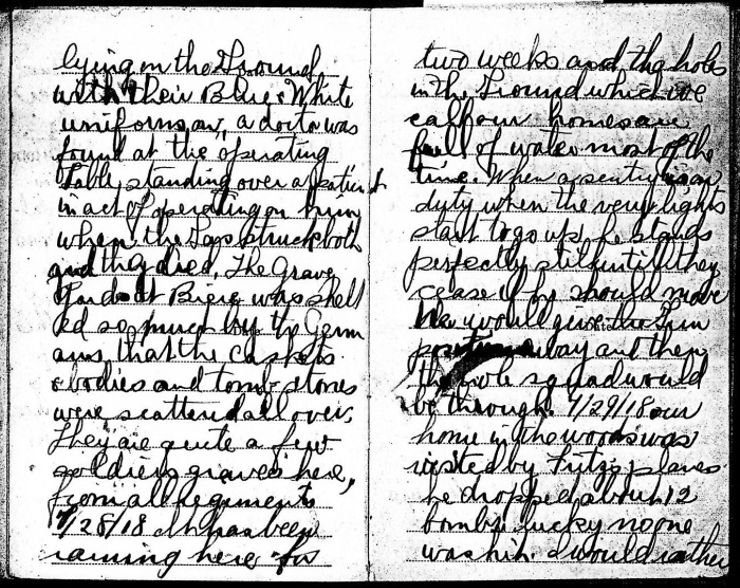 lying on the Ground
with their Blue & White
uniforms on, a doctor was
found at the operating
table, standing over a patient
in act of operating on him
when the Gas struck both
and they died. The Grave
Yards at was shell
ed so much by the Germ
ans, that the caskets
& bodies and tomb stones
were scattered all over,
They are quite a few
soldiers graves here,
from all Regiments
7/28/18 It has been
raining here for
two weeks and the holes
in the Ground which we
call our homes are
full of water most of the
time. When a sentry is on
duty when the very lights
start to go up, he stands
perfectly still until they
cease if he should move
he would give the Gun
position away and then
the whole squad would
be through. 7/29/18 our
home in the woods was
visited by Fritz's planes
he dropped about 12
bombs lucky no one
was hit. I would rather